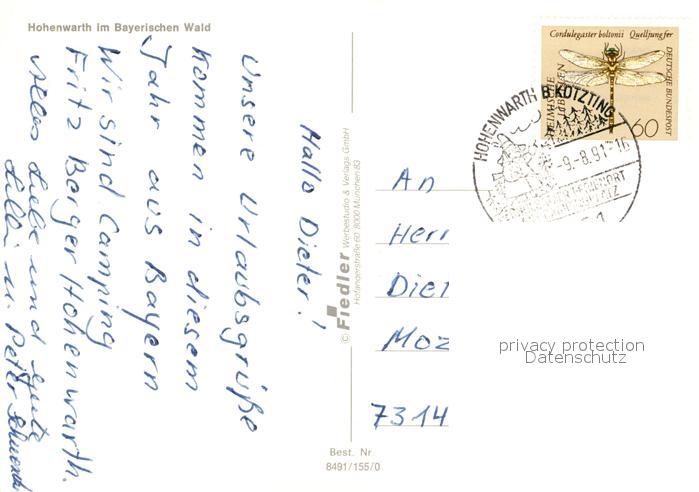 Hohenwarth im Bayerischen Wald
Hallo Dieter!
Unsere Urlaubsgrüße
kommen in diesem
Jahr aus Bayern
Wir sind Camping
Fritz Berger Hohenwarth.
Alles Liebe und Gute
Lilli u. Peter
© Fiedler Werbestudio & Verlags GmbH
Hofangerstraße 60 8000 München 83
Best. Nr
8491/155/0
Cordulegaster boltonii Quelljungfer
DEUTSCHE BUNDESPOST
60
HOHENWARTH B KÖTZTING
-9.-8.91-16
An
Herr
Diet
Moz
7314
privacy protection
Datenschutz